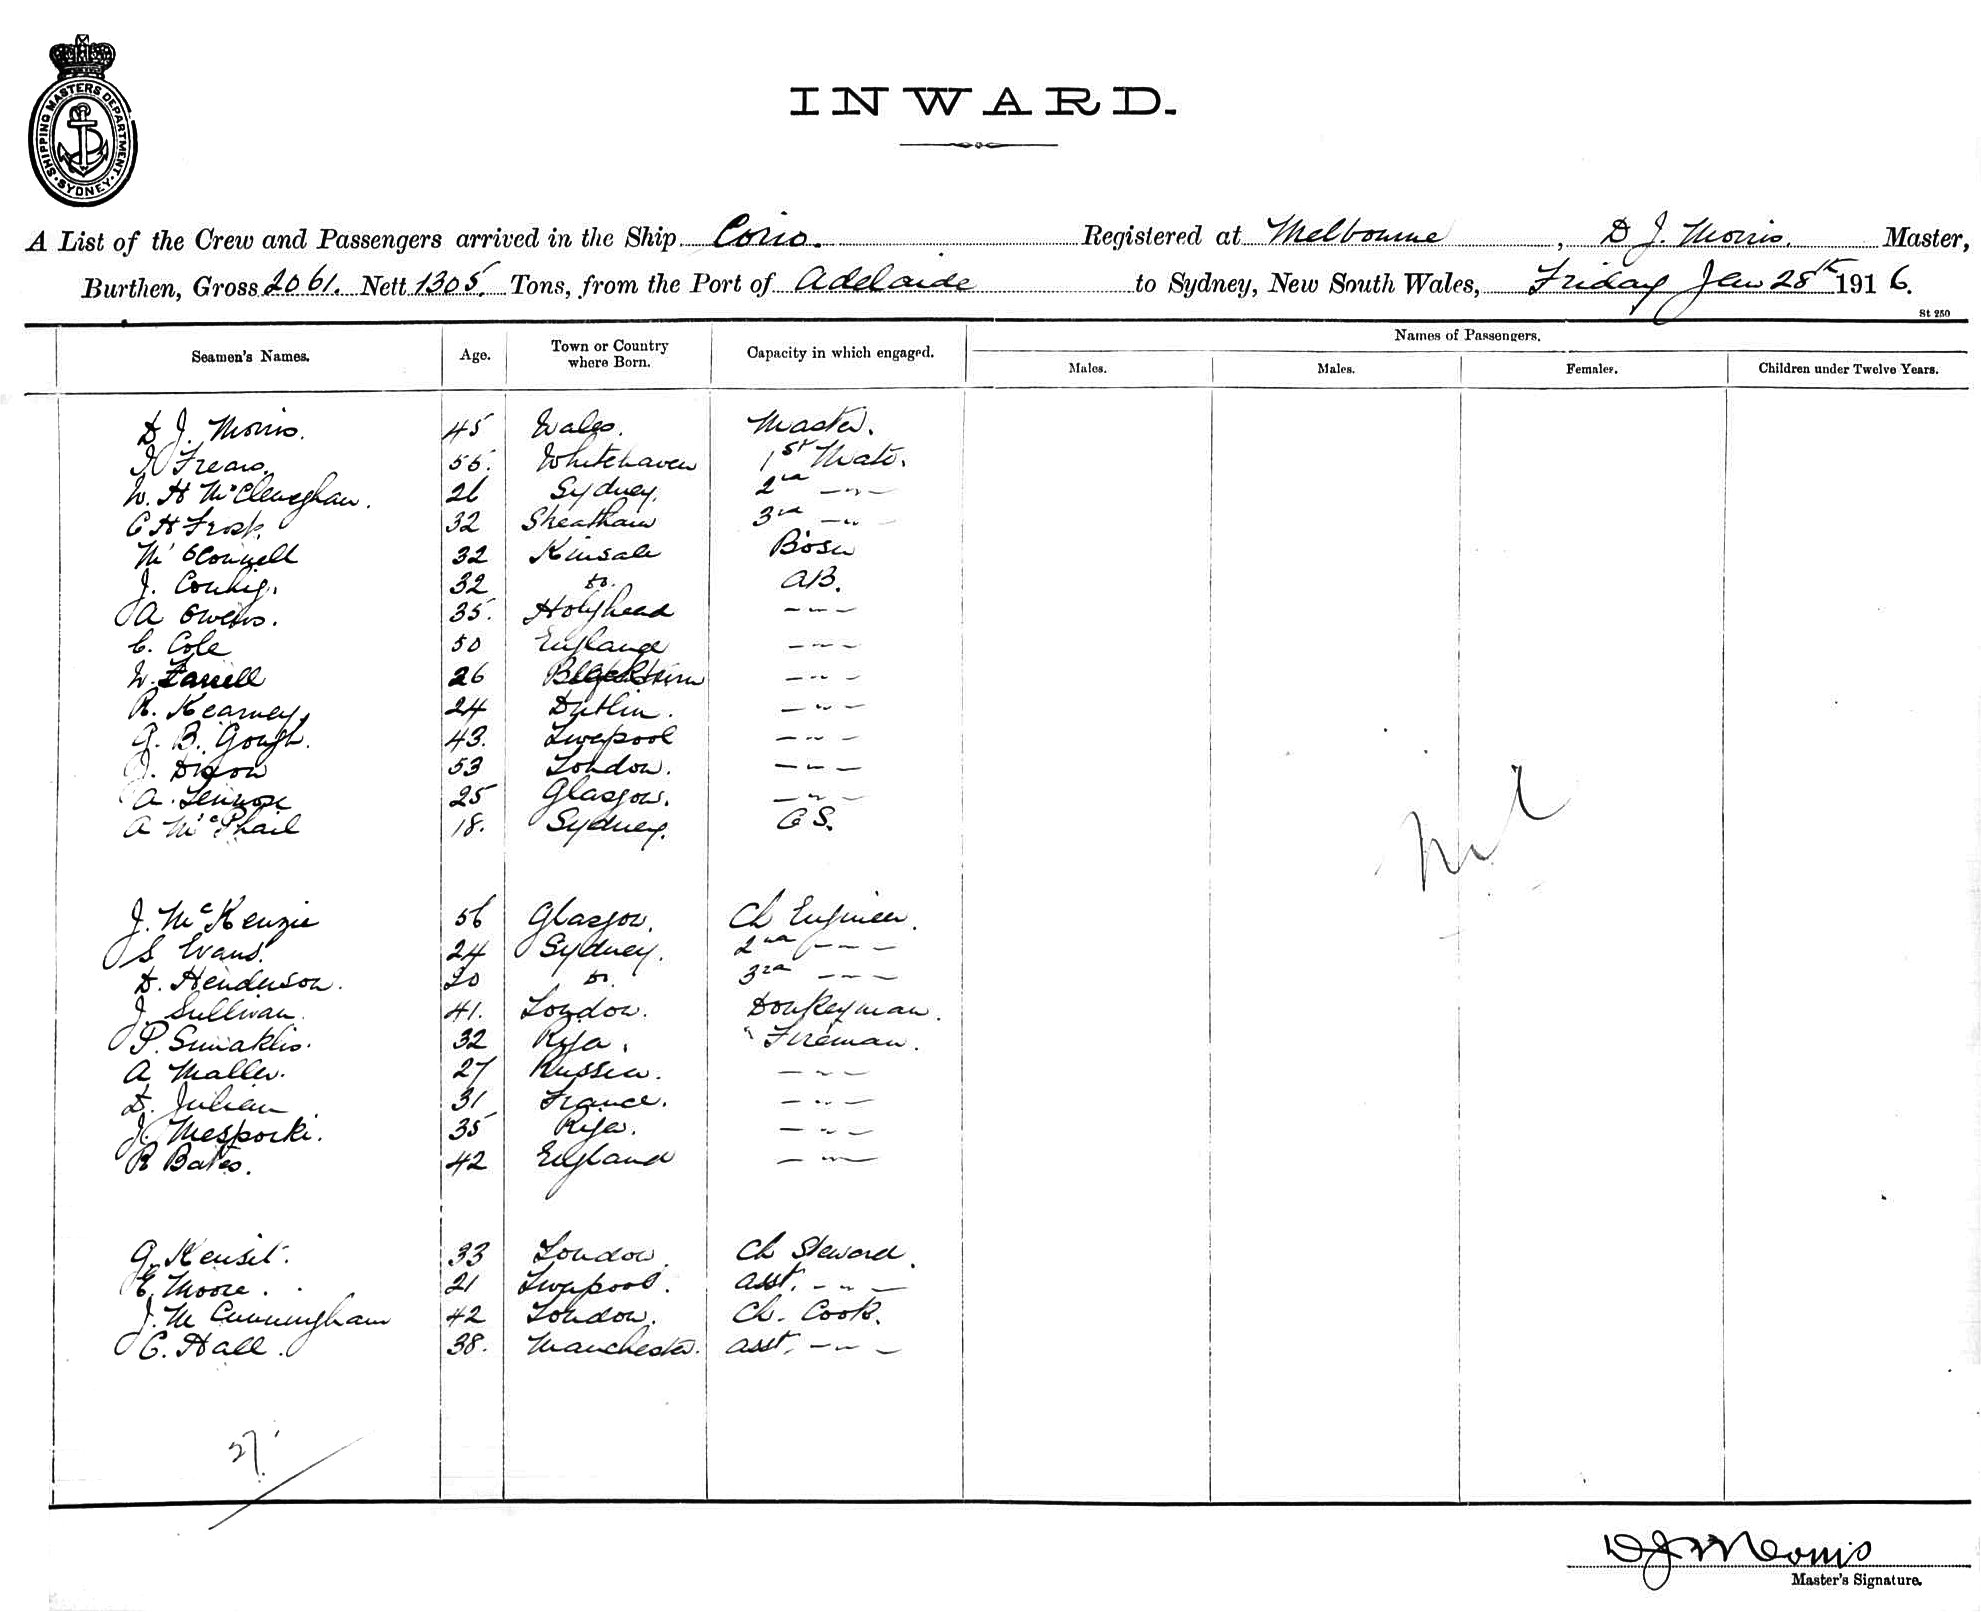 SHIPPING MASTERS DEPARTMENT
SYDNEY
INWARD.
A List of the Crew and Passengers arrived in the Ship Corio. Registered at Melbourne, D J. Morris. Master,
Burthen, Gross 2061. Nett 1305. Tons, from the Port of Adelaide to Sydney, New South Wales, Friday Jan 28th 1916.
St 250
Seamen's Names. Age. Town or Country where Born. Capacity in which engaged. Names of Passengers.
Males. Males. Females. Children under Twelve Years.
D J. Morris. 45 Wales. Master.
J Frears. 55. Whitehaven 1st Mate.
W. H McClenaghan. 26 Sydney. 2nd -"-
C H Frost. 32 3rd -"-
M OConnell 32 Kinsale Bosn
J. 32 do. AB.
A Owens. 35. Holyhead -"-
C. Cole 50 England -"-
W. Farrell 26 -"-
R. Kearney. 24 Dublin. -"-
G. B. Gough. 43. Liverpool -"-
J. Dixon 53 London. -"-
A. Lennox 25 Glasgow. -"-
A McPhail 18. Sydney. OS.
nil
J. McKenzie 56 Glasgow. Ch Engineer.
S Evans. 24 Sydney. 2nd -"-
D. Henderson. 20 do. 3rd -"-
J. Sullivan. 41. London. Donkeyman.
P. 32 Riga. Fireman.
A Maller. 27 Russia. -"-
D. Julian 31 France. -"-
J. Mesporki. 35 Riga. -"-
R Bates. 42 England -"-
G. Kensit. 33 London. Ch Steward.
E. Moore. 21 Liverpool. asst. -"-
J. M Cunningham 42 London. Ch. Cook.
C. Hall. 38. Manchester. asst. -"-
27.
D J Morris
Master's Signature.